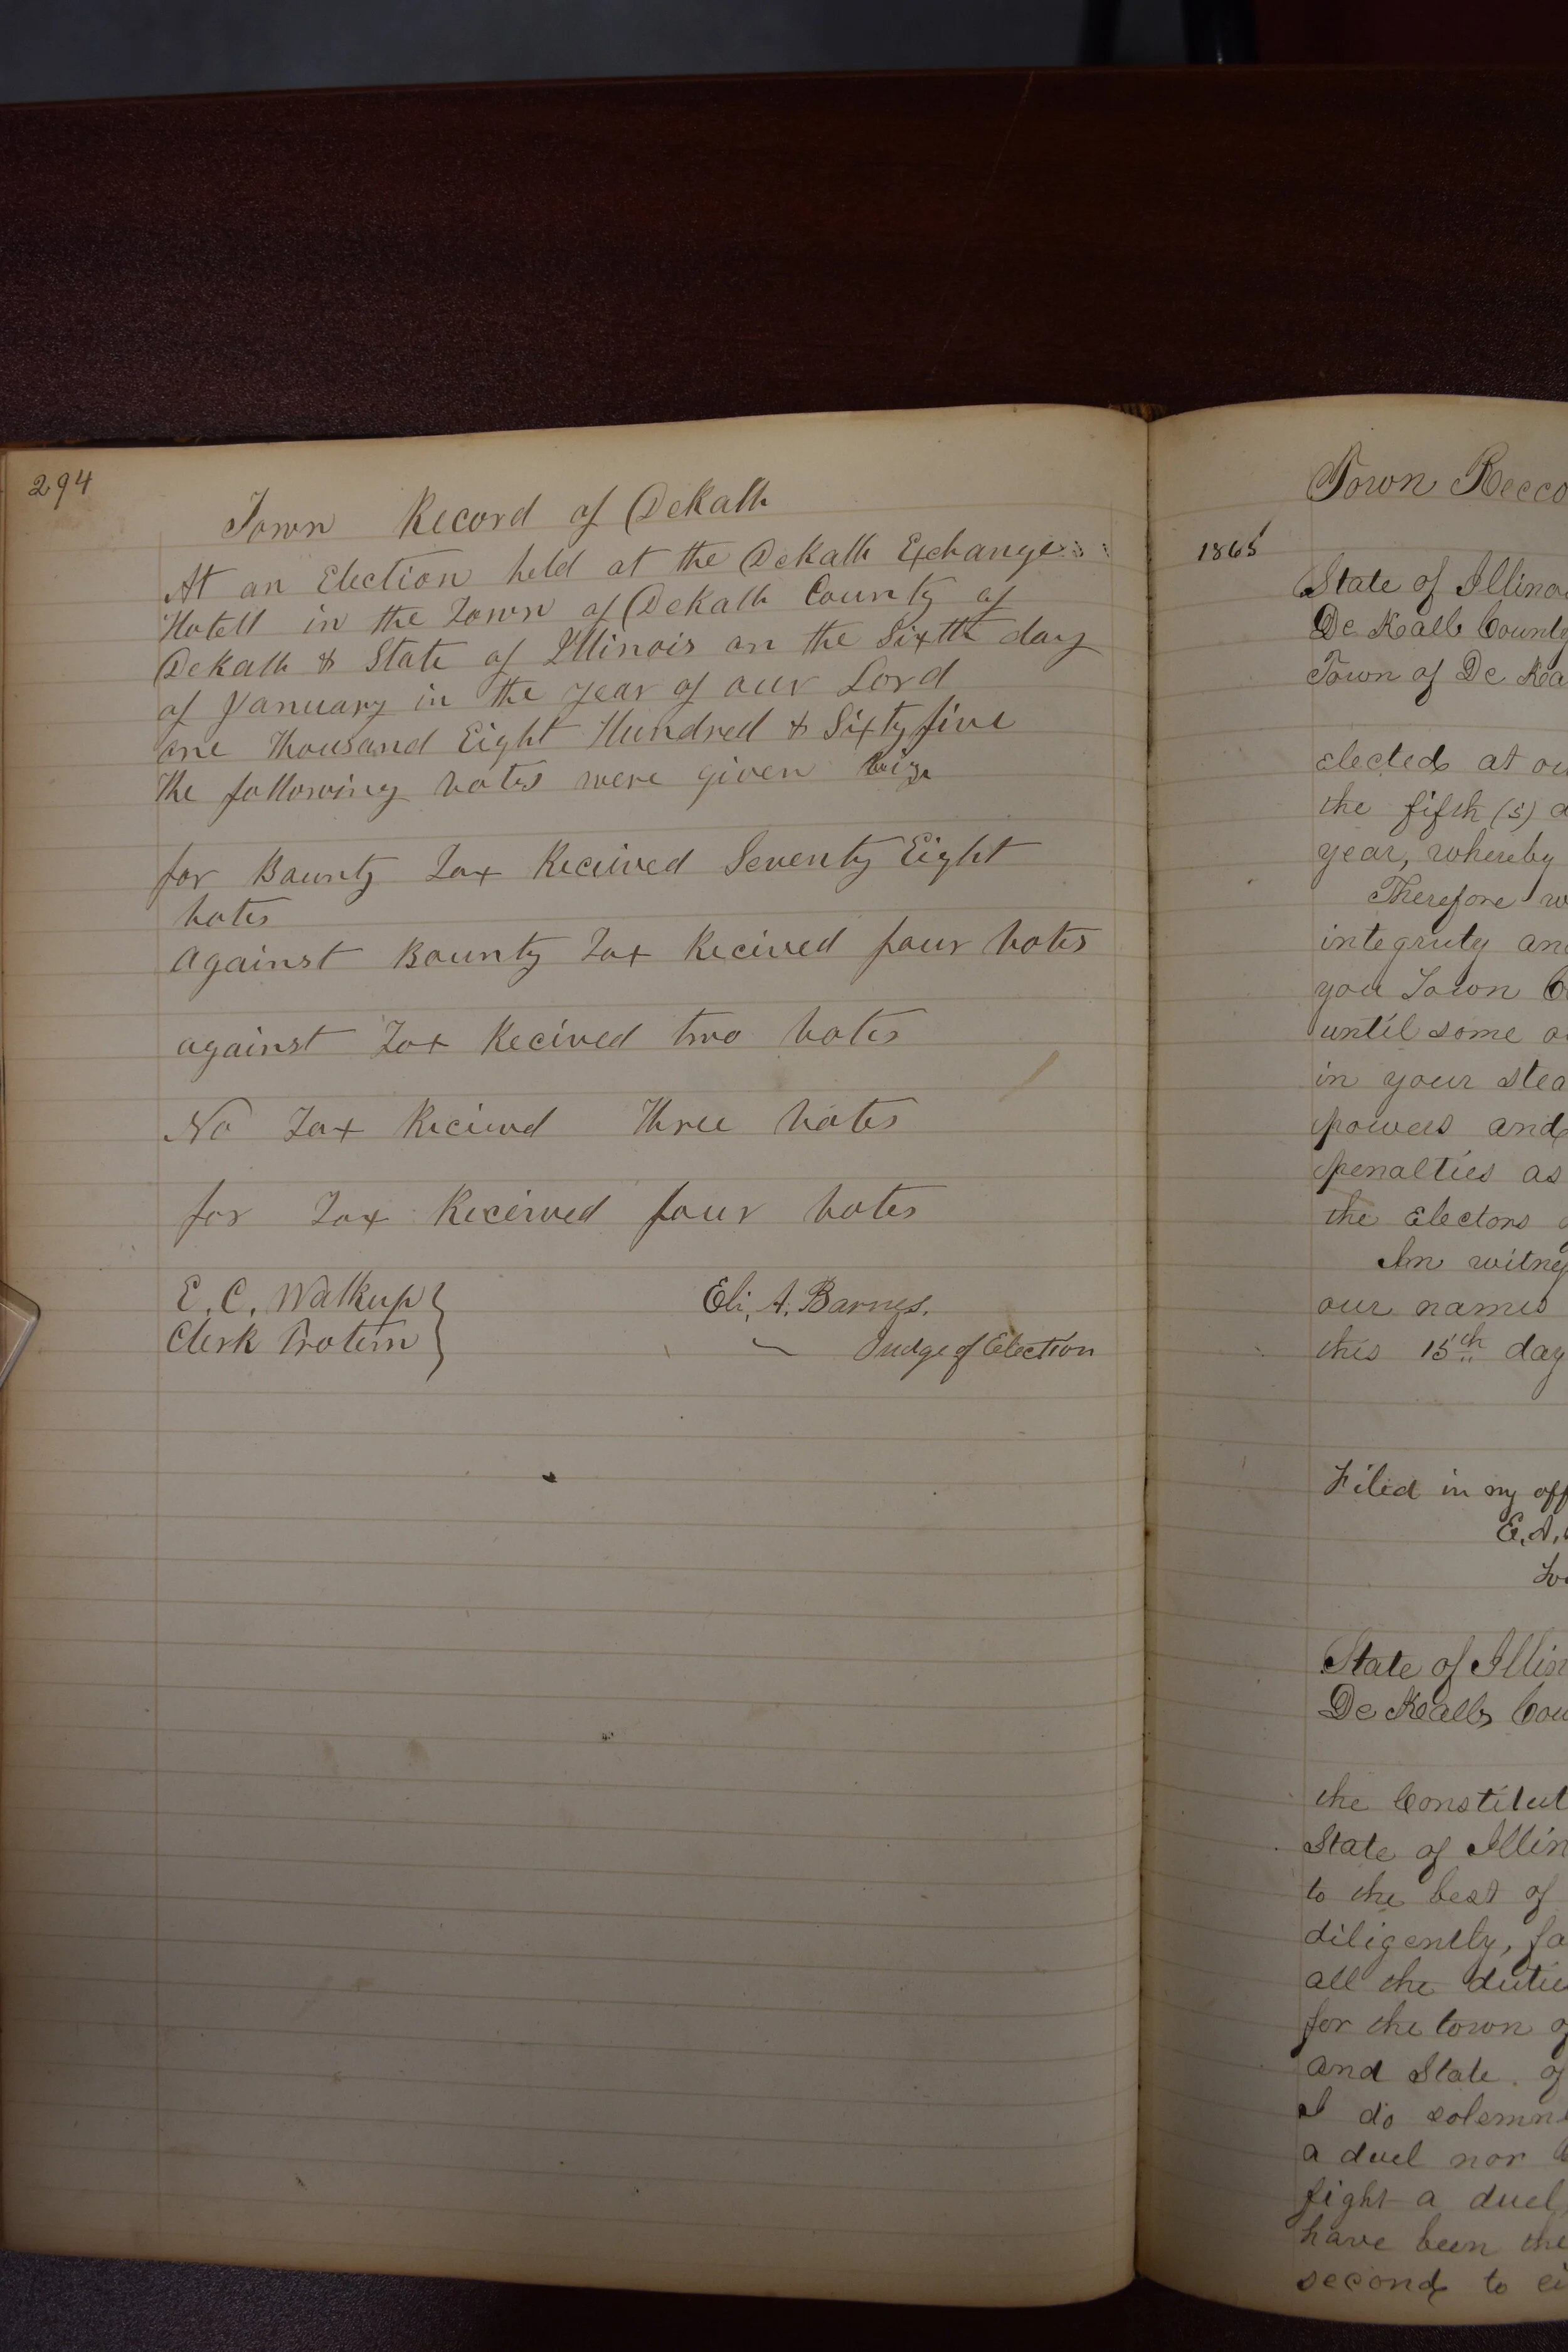 294
Town Record of DeKalb
At an Election held at the DeKalb Exchange
Hotell in the Town of DeKalb County of
DeKalb & State of Illinois on the Sixth day
of January in the year of our Lord
one Thousand Eight Hundred & Sixty five
The following votes were given
for Bounty Tax Recieved Seventy Eight
votes
against Bounty Tax Recived four votes
against Tax Recived two votes
No Tax Recieved Three votes
for Tax Recieved four votes
E. C. Walkup
Clerk Protem
Eli. A. Barnes.
Judge of Election
Town Recco
1865
State of Illinoi
De Kalb County
Town of De Ka
elected at ou
the fifth (5) d
year, whereby
Therefore w
integruty and
you Town C
until some o
in your stea
powers and
penalties as
the electors o
In witnes
our names
this 15th day
Filed in my off
E. A.
To
State of Illin
De Kalb Cou
the Constitut
State of Illin
to the best of
diligently, fa
all the dutie
for the town of
and State of
I do solemn
a duel nor
fight a duel,
have been the
second to ei